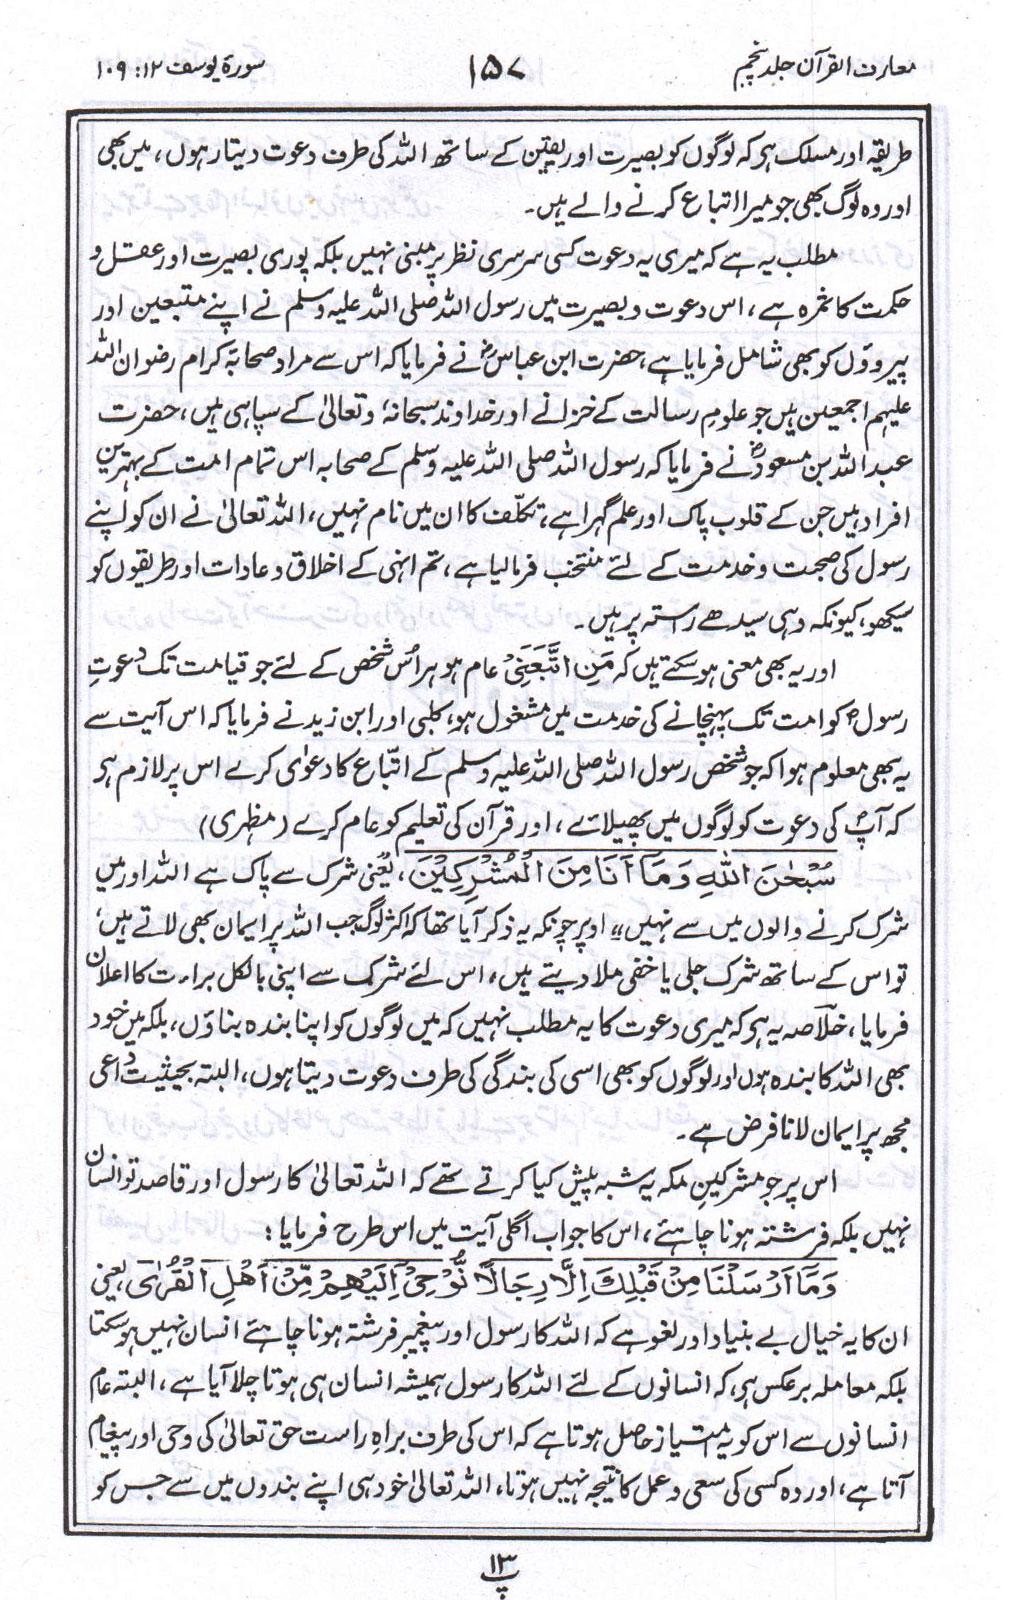 معارف القرآن جلد پنجم
۱۵۷
سورۃ یوسف ۱۲: ۱۰۹
طریقہ اور مسلک ہی کہ لوگوں کو بصیرت اور یقین کے ساتھ اللہ کی طرف دعوت دیتا رہوں، میں بھی
اور وہ لوگ بھی جو میرا اتباع کرنے والے ہیں۔
مطلب یہ ہے کہ میری یہ دعوت کسی سرسری نظر پر مبنی نہیں بلکہ پوری بصیرت اور عقل و
حکمت کا ثمرہ ہے، اس دعوت و بصیرت میں رسول اللہ صلی اللہ علیہ وسلم نے اپنے متبعین اور
پیرووں کو بھی شامل فرمایا ہے، حضرت ابن عباسؓ نے فرمایا کہ اس سے مراد صحابۂ کرام رضوان اللہ
علیہم اجمعین ہیں جو علومِ رسالت کے خزانے اور خداوند سبحانہٗ وتعالیٰ کے سپاہی ہیں، حضرت
عبد اللہ بن مسعودؓ نے فرمایا کہ رسول اللہ صلی اللہ علیہ وسلم کے صحابہ اس تمام امت کے بہترین
افراد ہیں جن کے قلوب پاک اور علم گہرا ہے، تکلّف کا ان میں نام نہیں، اللہ تعالیٰ نے ان کو اپنے
رسول کی صحبت و خدمت کے لئے منتخب فرمالیا ہے، تم انہی کے اخلاق و عادات اور طریقوں کو
سیکھو، کیونکہ وہی سیدھے رستہ پر ہیں۔
اور یہ بھی معنی ہو سکتے ہیں کہ مَنِ اتَّبَعَنِیْ عام ہو ہر اُس شخص کے لئے جو قیامت تک دعوتِ
رسولؐ کو امت تک پہنچانے کی خدمت میں مشغول ہو، کلبی اور ابن زید نے فرمایا کہ اس آیت سے
یہ بھی معلوم ہوا کہ جو شخص رسول اللہ صلی اللہ علیہ وسلم کے اتّباع کا دعویٰ کرے اس پر لازم ہی
کہ آپؐ کی دعوت کو لوگوں میں پھیلائے، اور قرآن کی تعلیم کو عام کرے (مظہری)
سُبْحٰنَ اللّٰہِ وَمَآ اَنَا مِنَ الْمُشْرِکِیْنَ، یعنی شرک سے پاک ہے اللہ اور میں
شرک کرنے والوں میں سے نہیں،، اوپر چونکہ یہ ذکر آیا تھا کہ اکثر لوگ جب اللہ پر ایمان بھی لاتے ہیں،
تو اس کے ساتھ شرک جلی یا خفی ملادیتے ہیں، اس لئے شرک سے اپنی بالکل براءت کا اعلان
فرمایا، خلاصہ یہ ہی کہ میری دعوت کا یہ مطلب نہیں کہ میں لوگوں کو اپنا بندہ بناؤں، بلکہ میں خود
بھی اللہ کا بندہ ہوں اور لوگوں کو بھی اسی کی بندگی کی طرف دعوت دیتا ہوں، البتہ بحیثیت داعی
مجھ پر ایمان لانا فرض ہے۔
اس پر جو مشرکینِ مکہ یہ شبہ پیش کیا کرتے تھے کہ اللہ تعالیٰ کا رسول اور قاصد تو انسان
نہیں بلکہ فرشتہ ہونا چاہئے، اس کا جواب اگلی آیت میں اس طرح فرمایا:
وَمَآ اَرْسَلْنَا مِنْ قَبْلِکَ اِلَّا رِجَالًا نُّوْحِیْٓ اِلَیْھِمْ مِّنْ اَھْلِ الْقُرٰی، یعنی
ان کا یہ خیال بے بنیاد اور لغو ہے کہ اللہ کا رسول اور پیغمبر فرشتہ ہونا چاہئے انسان نہیں ہو سکتا
بلکہ معاملہ برعکس ہی، کہ انسانوں کے لئے اللہ کا رسول ہمیشہ انسان ہی ہوتا چلا آیا ہے، البتہ عام
انسانوں سے اس کو یہ امتیاز حاصل ہوتا ہے کہ اس کی طرف براہِ راست حق تعالیٰ کی وحی اور پیغام
آتا ہے، اور وہ کسی کی سعی و عمل کا نتیجہ نہیں ہوتا، اللہ تعالیٰ خود ہی اپنے بندوں میں سے جس کو
پ ۱۳